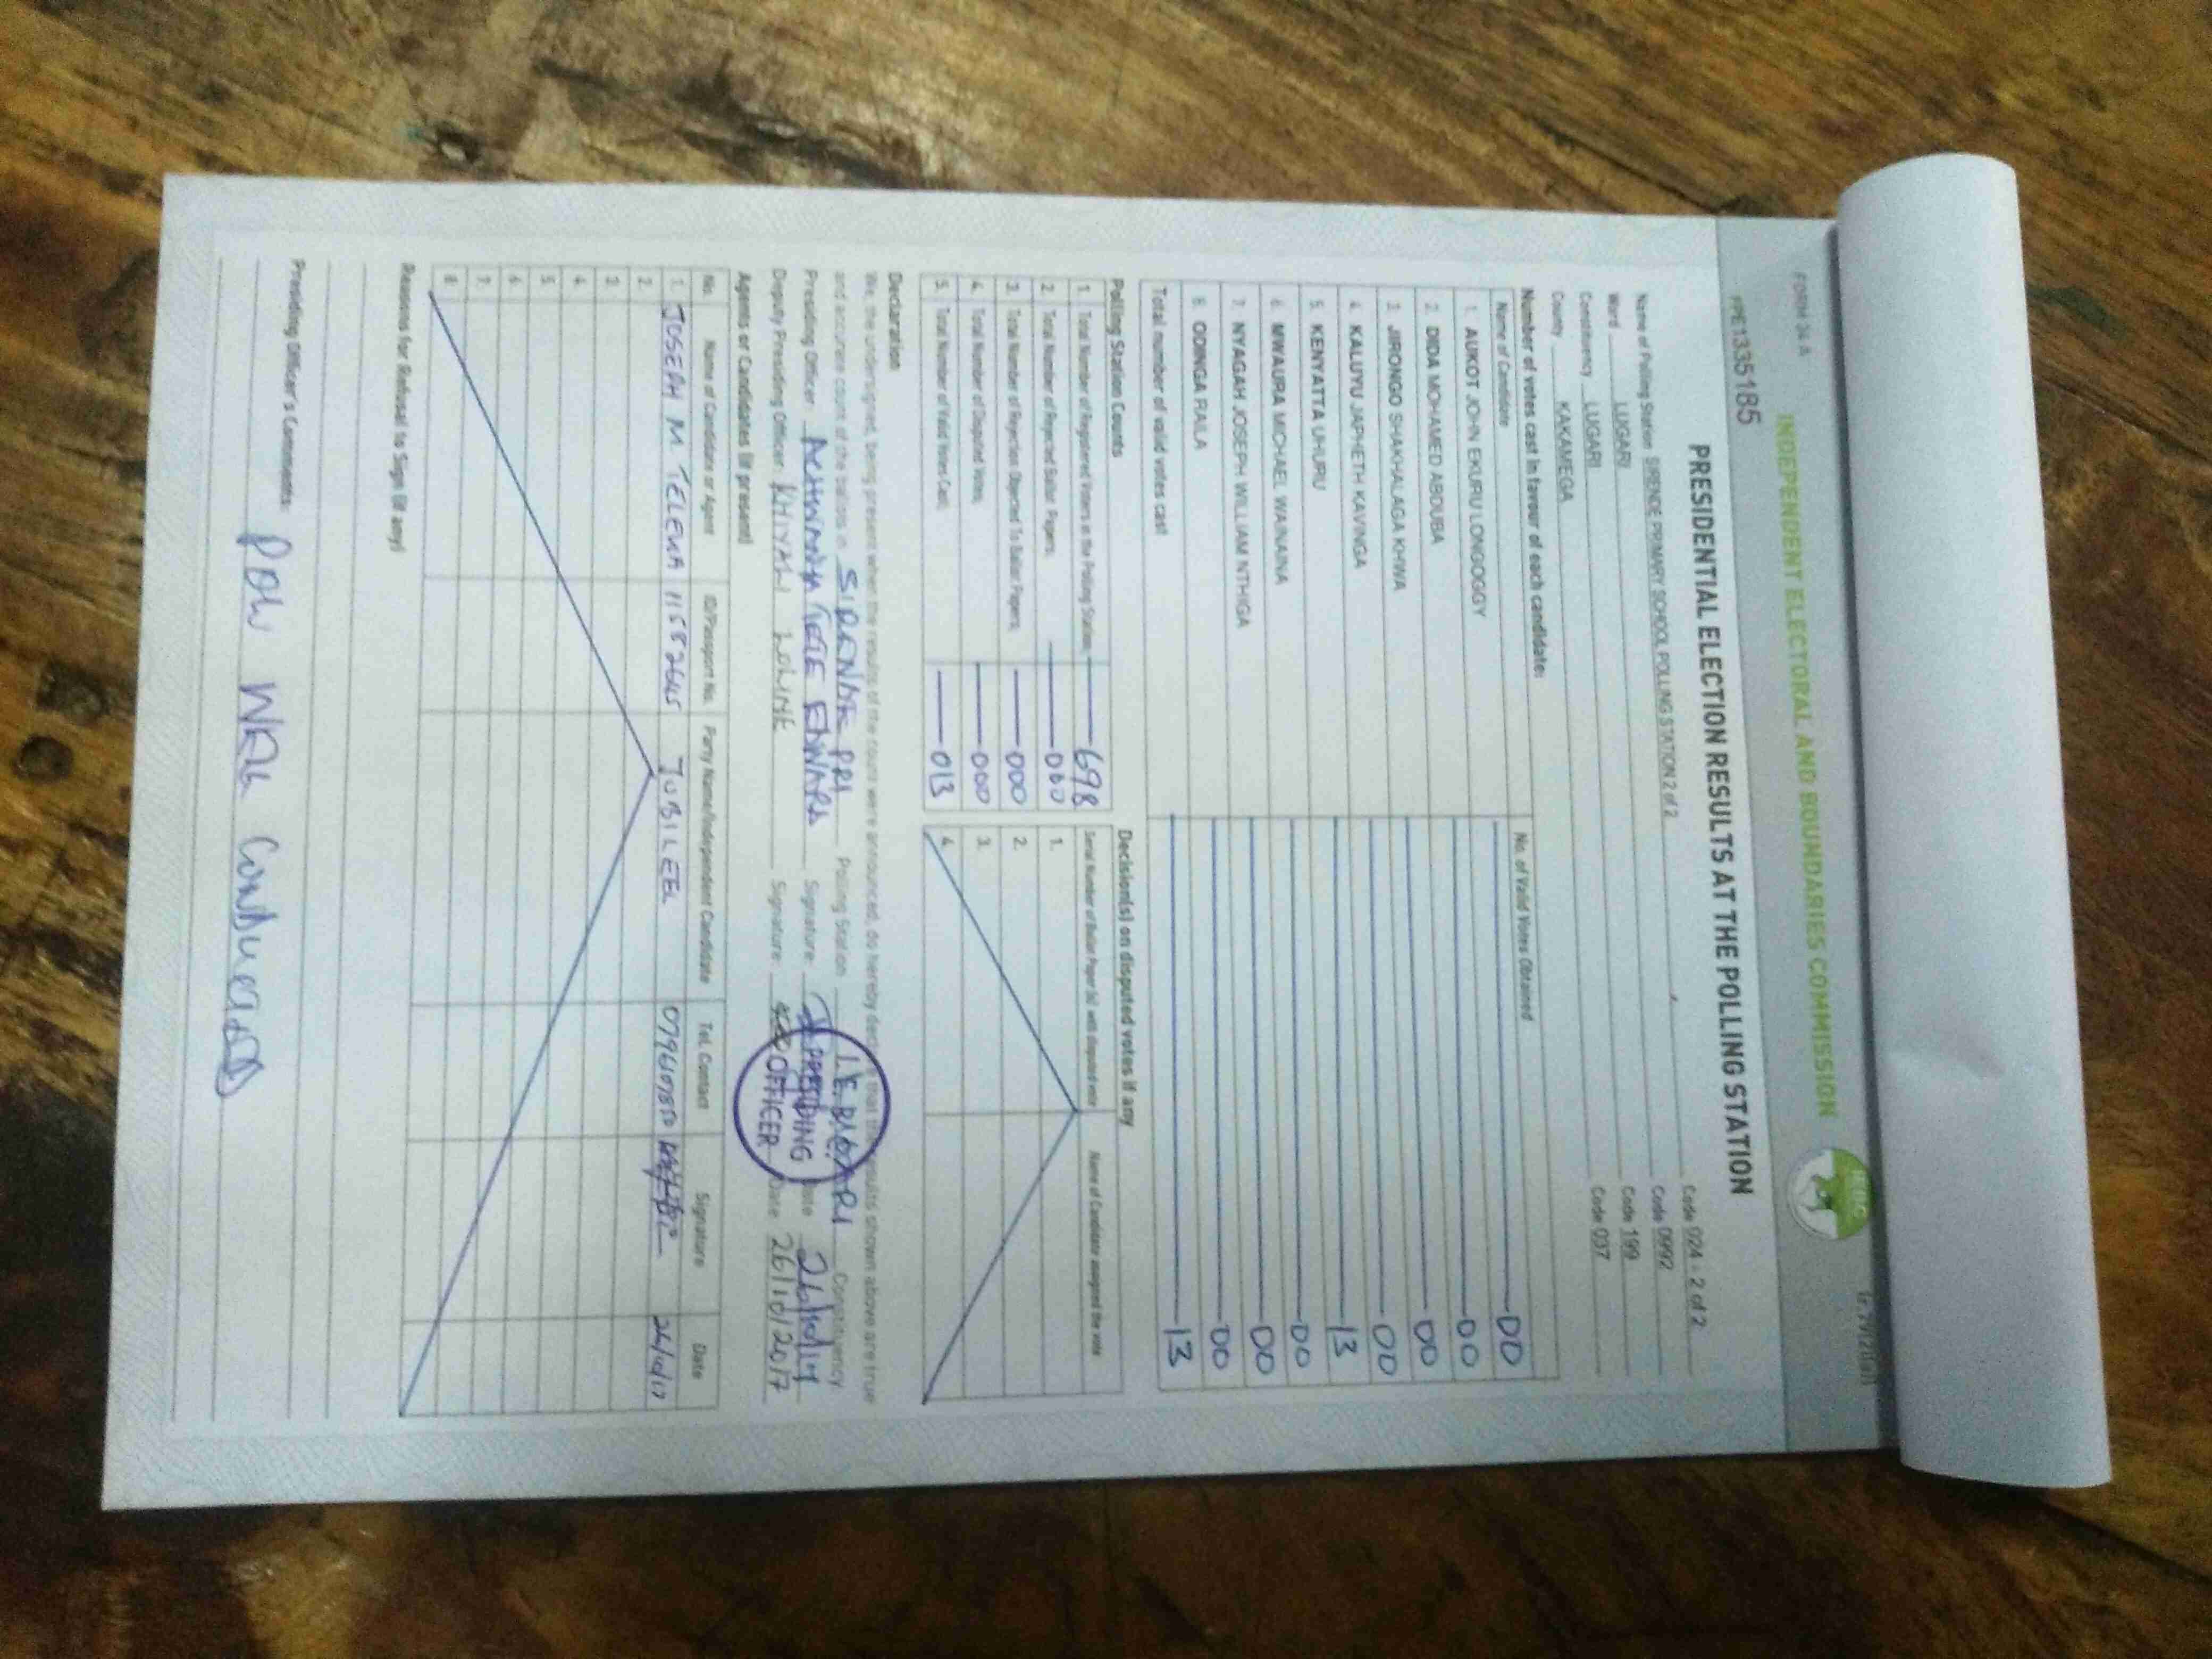 FORM 34 A
INDEPENDENT ELECTORAL AND BOUNDARIES COMMISSION
IEBC
PPE1335185
PRESIDENTIAL ELECTION RESULTS AT THE POLLING STATION
Name of Polling Station SIRENDE PRIMARY SCHOOL POLLING STATION 2 of 2 Code 024 - 2 of 2
Code 0992
Ward LUGARI Code 199
Constituency LUGARI Code 037
County KAKAMEGA
Number of votes cast in favour of each candidate:
Name of Candidate No. of Valid Votes Obtained
1. AUKOT JOHN EKURU LONGOGGY 00
2. DIDA MOHAMED ABDUBA 00
3. JIRONGO SHAKHALAGA KHWA 00
4. KALUYU JAPHETH KAVINGA 00
5. KENYATTA UHURU 13
6. MWAURA MICHAEL WAINAINA 00
7. NYAGAH JOSEPH WILLIAM NTHIGA 00
8. ODINGA RAILA 00
Total number of valid votes cast 13
Polling Station Counts
1. Total Number of Registered Voters in the Polling Station 698
2. Total Number of Rejected Ballot Papers 000
3. Total Number of Rejection Objected To Ballot Papers 000
4. Total Number of Disputed Votes 000
5. Total Number of Valid Votes Cast 013
Decision(s) on disputed votes if any
Serial Number of Ballot Paper (s) with disputed vote Name of Candidate assigned the vote
1.
2.
3.
4.
Declaration
We, the undersigned, being present when the results of the count were announced, do hereby declare that the results shown above are true
and accurate count of the ballots in SIRENDE PRI Polling Station LUGARI Constituency
Presiding Officer EDWARD Signature Date 26/10/17
Deputy Presiding Officer KHIYAHI Signature Date 26/10/2017
PRESIDING
OFFICER
Agents or Candidates (if present)
No. Name of Candidate or Agent ID/Passport No. Party Name/Independent Candidate Tel. Contact Signature Date
1. JOSEPH M. TELEWA 11582645 JUBILEE 26/10/17
2.
3.
4.
5.
6.
7.
8.
Reasons for Refusal to Sign (if any)
Presiding Officer's Comments: POLL WELL CONDUCTED